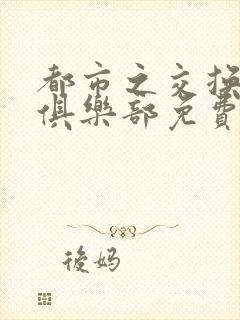 都市之交换
俱樂部免費
後妈